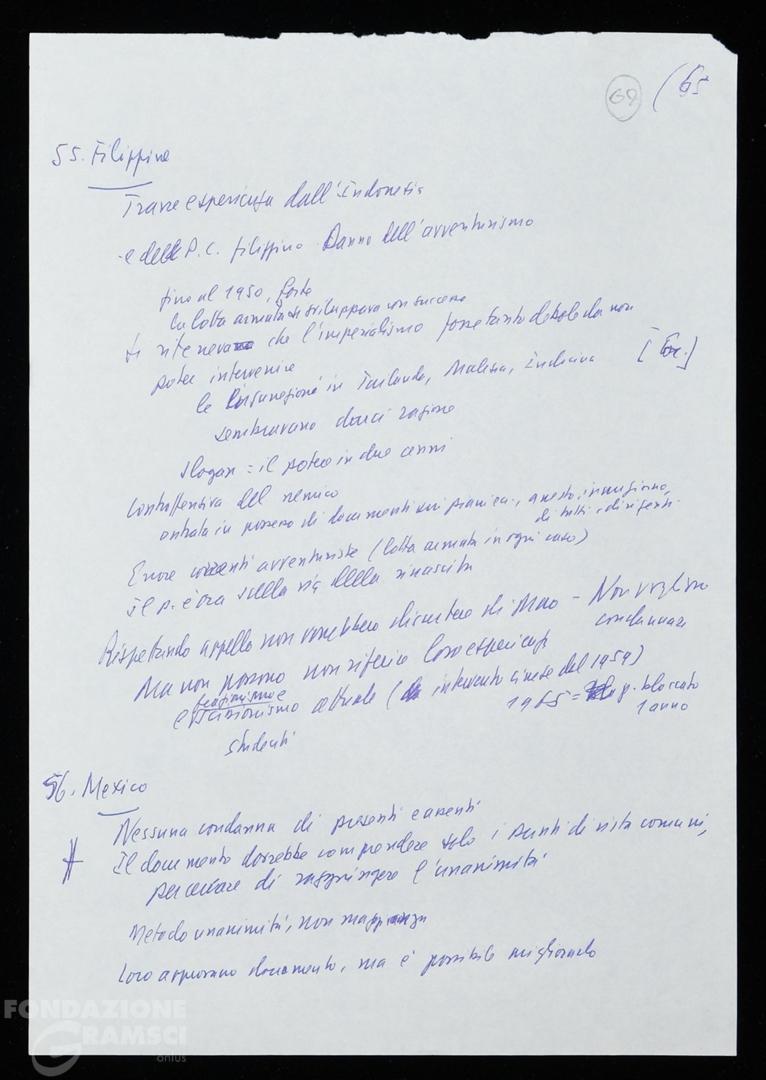 69 (65
55. Filippine
Trarre esperienza dall'Indonesia
e delle P.C. filippino. Danno dell'avventurismo
fino al 1950, forte
la lotta armata si sviluppava con successo
si riteneva che l'imperialismo fosse tanto debole da non
poter intervenire
le insurrezioni in Tailandia, Malesia, Indocina
sembravano darci ragione
slogan = il potere in due anni
Controffensiva del nemico
entrata in possesso di documenti, arresto, in un giorno,
di tutti i dirigenti
Errore avventuriste (lotta armata in ogni caso)
il p. è ora sulla via della rinascita
Rispettando appello non vorrebbero discutere di Mao - Non vogliono
condannare
Ma non possono non riferire loro esperienza
frazionismo e
e scissionismo attuale (intervento cinese dal 1959)
1965 = p. bloccato
1 anno
studenti
56. Mexico
Nessuna condanna di presenti e assenti
Il documento dovrebbe comprendere solo i punti di vista comuni,
per cercare di raggiungere l'unanimità
Metodo unanimità, non maggioranza
Loro approvano documento, ma è possibile migliorarlo
FONDAZIONE
GRAMSCI
onlus